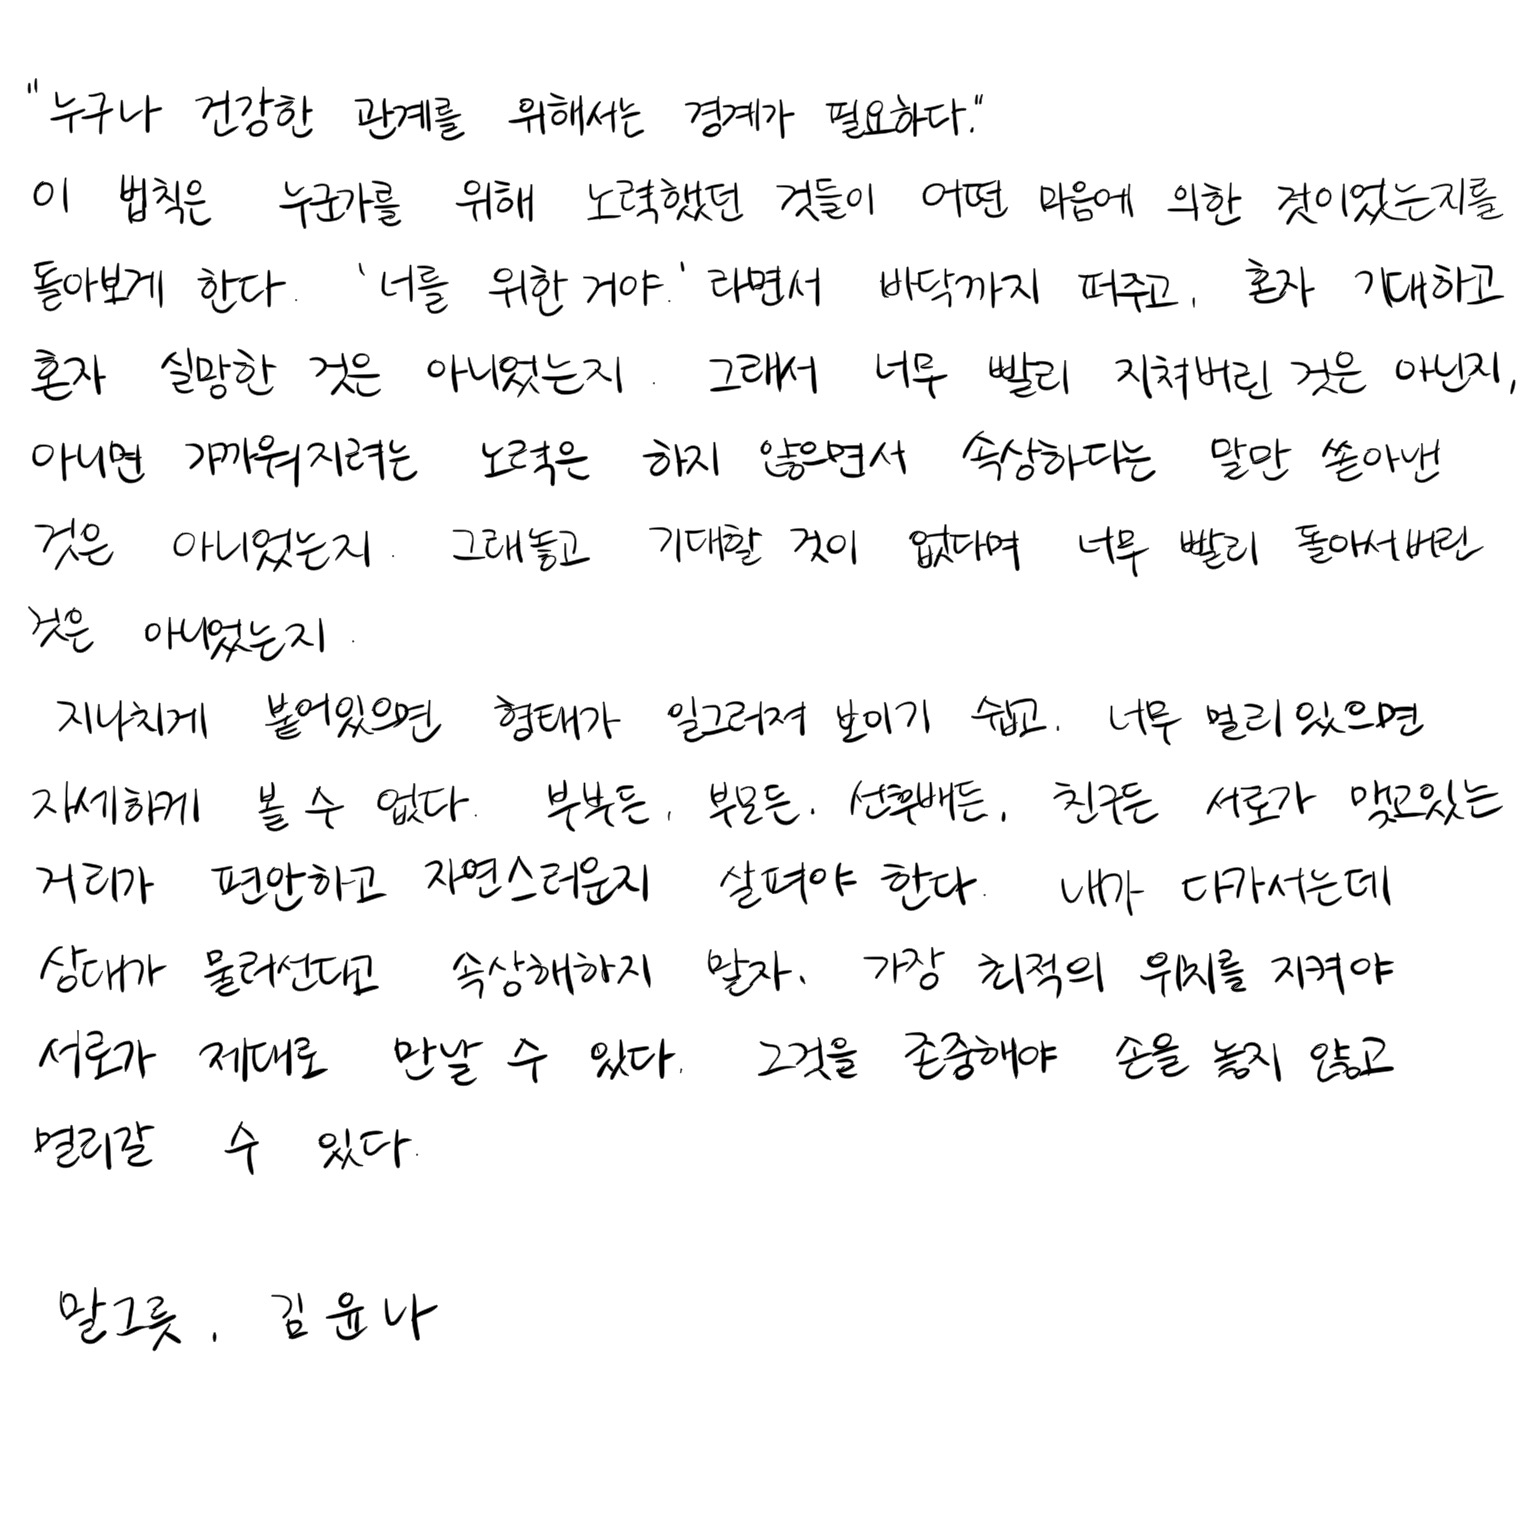 "누구나 건강한 관계를 위해서는 경계가 필요하다."
이 법칙은 누군가를 위해 노력했던 것들이 어떤 마음에 의한 것이었는지를
돌아보게 한다. '너를 위한 거야.' 라면서 바닥까지 퍼주고, 혼자 기대하고
혼자 실망한 것은 아니었는지. 그래서 너무 빨리 지쳐버린 것은 아닌지,
아니면 가까워지려는 노력은 하지 않으면서 속상하다는 말만 쏟아낸
것은 아니었는지. 그래놓고 기대할 것이 없다며 너무 빨리 돌아서버린
것은 아니었는지.
지나치게 붙어있으면 형태가 일그러져 보이기 쉽고, 너무 멀리 있으면
자세하게 볼 수 없다. 부부든, 부모든, 선후배든, 친구든 서로가 맺고있는
거리가 편안하고 자연스러운지 살펴야 한다. 내가 다가서는데
상대가 물러선다고 속상해하지 말자. 가장 최적의 위치를 지켜야
서로가 제대로 만날 수 있다. 그것을 존중해야 손을 놓지 않고
멀리갈 수 있다.
말그릇, 김윤나